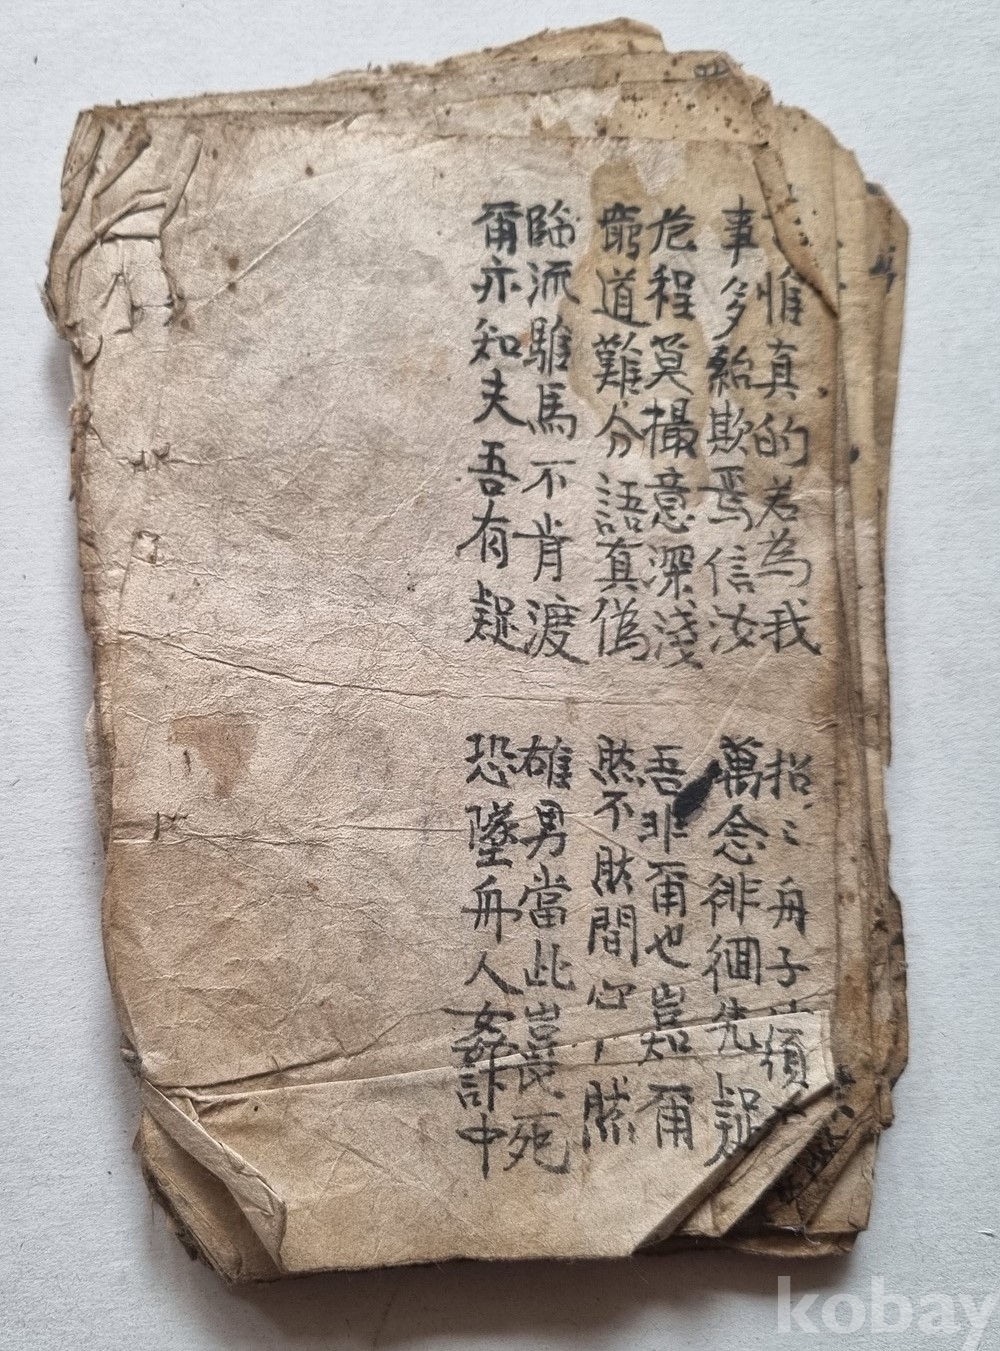 惟真的若為我 招〻舟子須
事多紿欺焉信汝 萬念徘徊先疑
危程莫撮意深淺 吾非甭也豈知甭
窮道難分語真偽 然不肰間心 肰
臨流騅馬不肯渡 雄男當此豈畏死
甭亦知夫吾有疑 恐墜舟人姦詐中
kobay